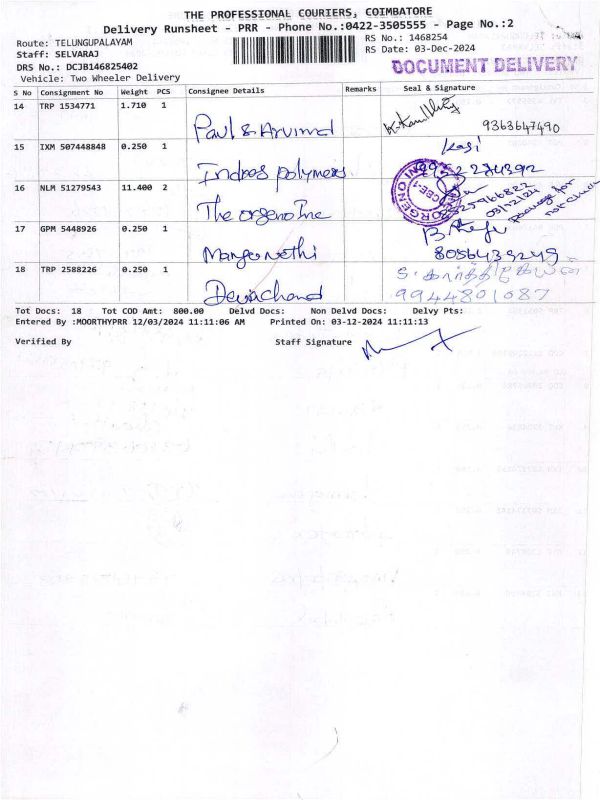 THE PROFESSIONAL COURIERS, COIMBATORE
Delivery Runsheet - PRR - Phone No.:0422-3505555 - Page No.:2
Route: TELUNGUPALAYAM
RS No.: 1468254
Staff: SELVARAJ
RS Date: 03-Dec-2024
DRS No.: DCJB146825402
DOCUMENT DELIVERY
Vehicle: Two Wheeler Delivery
S No Consignment No Weight PCS Consignee Details Remarks Seal & Signature
14 TRP 1534771 1.710 1
Paul & Arvind 9363647490
15 IXM 507448848 0.250 1 Kasi
Indros polymers 9952284392
16 NLM 51279543 11.400 2
The orgeno Inc 03/12/24
17 GPM 5448926 0.250 1
Mangunethi 8056439249
18 TRP 2588226 0.250 1 S.
Devichand 9944801087
Tot Docs: 18 Tot COD Amt: 800.00 Delvd Docs: Non Delvd Docs: Delvy Pts:
Entered By :MOORTHYPRR 12/03/2024 11:11:06 AM Printed On: 03-12-2024 11:11:13
Verified By Staff Signature